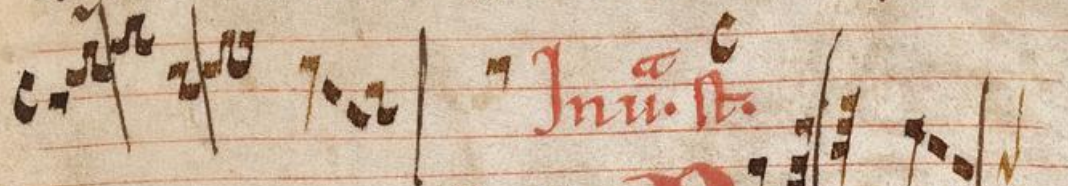 Inuͣ. st.